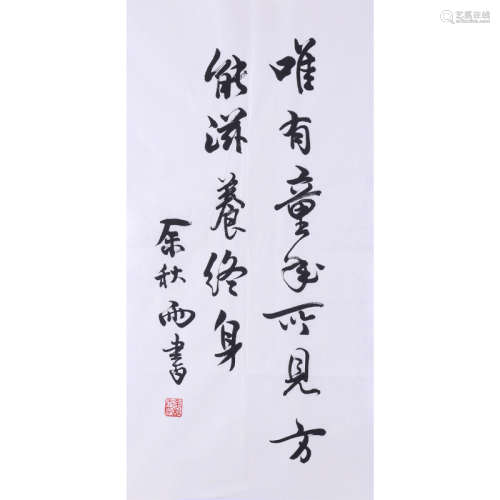 唯有童年所見方
能滋養終身
余秋雨書